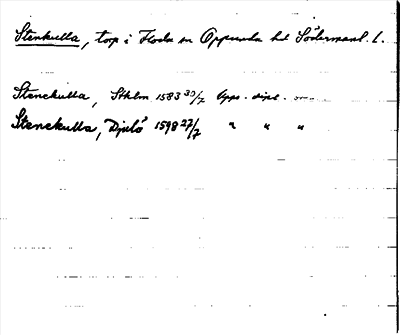 Stenkulla, torp i Floda sn Oppunda hd Södermanl. l.
Stenekulla, Sthlm 1583 30/7 Upps. dipl.
Stenekulla, Djulö 1598 27/7 " " "